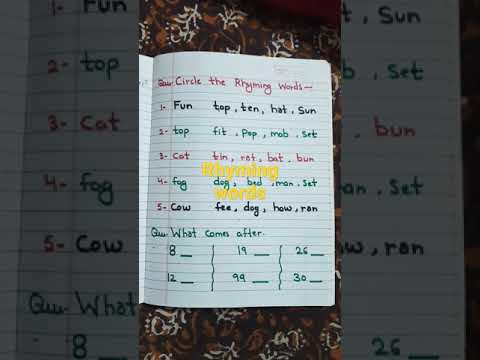 Qus Circle the Rhyming Words-
1- Fun top, ten, hat, Sun
2- top fit, pop, mob, Set
3- Cat tin, rat, bat, bun
4- fog dog, bed, man, Set
5- Cow fee, dog, how, ran
Qus What comes after.
8 __ 19 __ 26 __
12 __ 99 __ 30 __
Rhyming
words
1- Fun , Sun
2- top , Set
3- Cat bun
4- fog , Set
5- Cow , ran
Qus What
8 26